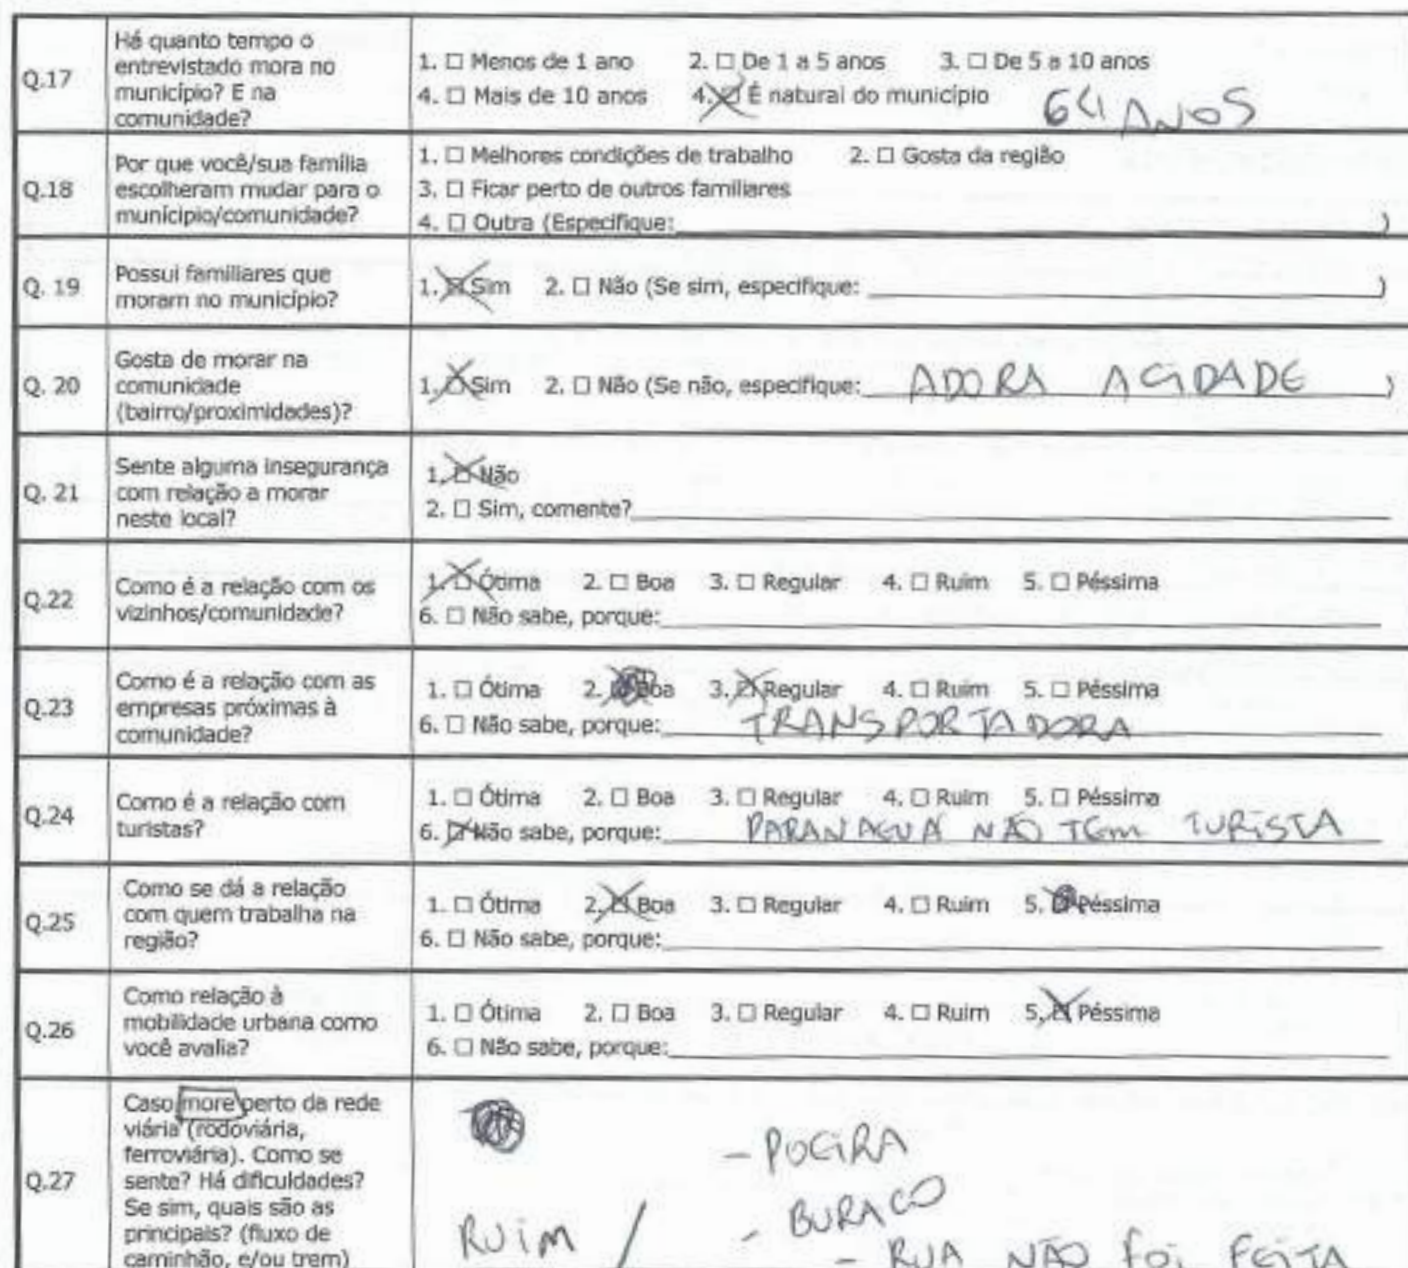 Q.17
Há quanto tempo o
entrevistado mora no
município? E na
comunidade?
1. ☐ Menos de 1 ano 2. ☐ De 1 a 5 anos 3. ☐ De 5 a 10 anos
4. ☐ Mais de 10 anos 4. ☒ É natural do município 64 ANOS
Q.18
Por que você/sua família
escolheram mudar para o
município/comunidade?
1. ☐ Melhores condições de trabalho 2. ☐ Gosta da região
3. ☐ Ficar perto de outros familiares
4. ☐ Outra (Especifique: )
Q. 19
Possui familiares que
moram no município?
1. ☒ Sim 2. ☐ Não (Se sim, especifique: )
Q. 20
Gosta de morar na
comunidade
(bairro/proximidades)?
1. ☒ Sim 2. ☐ Não (Se não, especifique: ADORA A CIDADE )
Q. 21
Sente alguma insegurança
com relação a morar
neste local?
1. ☒ Não
2. ☐ Sim, comente?
Q.22
Como é a relação com os
vizinhos/comunidade?
1. ☒ Ótima 2. ☐ Boa 3. ☐ Regular 4. ☐ Ruim 5. ☐ Péssima
6. ☐ Não sabe, porque:
Q.23
Como é a relação com as
empresas próximas à
comunidade?
1. ☐ Ótima 2. ☒ Boa 3. ☒ Regular 4. ☐ Ruim 5. ☐ Péssima
6. ☐ Não sabe, porque: TRANSPORTADORA
Q.24
Como é a relação com
turistas?
1. ☐ Ótima 2. ☐ Boa 3. ☐ Regular 4. ☐ Ruim 5. ☐ Péssima
6. ☒ Não sabe, porque: PARANAGUÁ NÃO TEM TURISTA
Q.25
Como se dá a relação
com quem trabalha na
região?
1. ☐ Ótima 2. ☒ Boa 3. ☐ Regular 4. ☐ Ruim 5. ☒ Péssima
6. ☐ Não sabe, porque:
Q.26
Como relação à
mobilidade urbana como
você avalia?
1. ☐ Ótima 2. ☐ Boa 3. ☐ Regular 4. ☐ Ruim 5. ☒ Péssima
6. ☐ Não sabe, porque:
Q.27
Caso more perto da rede
viária (rodoviária,
ferroviária). Como se
sente? Há dificuldades?
Se sim, quais são as
principais? (fluxo de
caminhão, e/ou trem)
- POEIRA
- BURACO
RUIM /
- RUA NÃO FOI FEITA